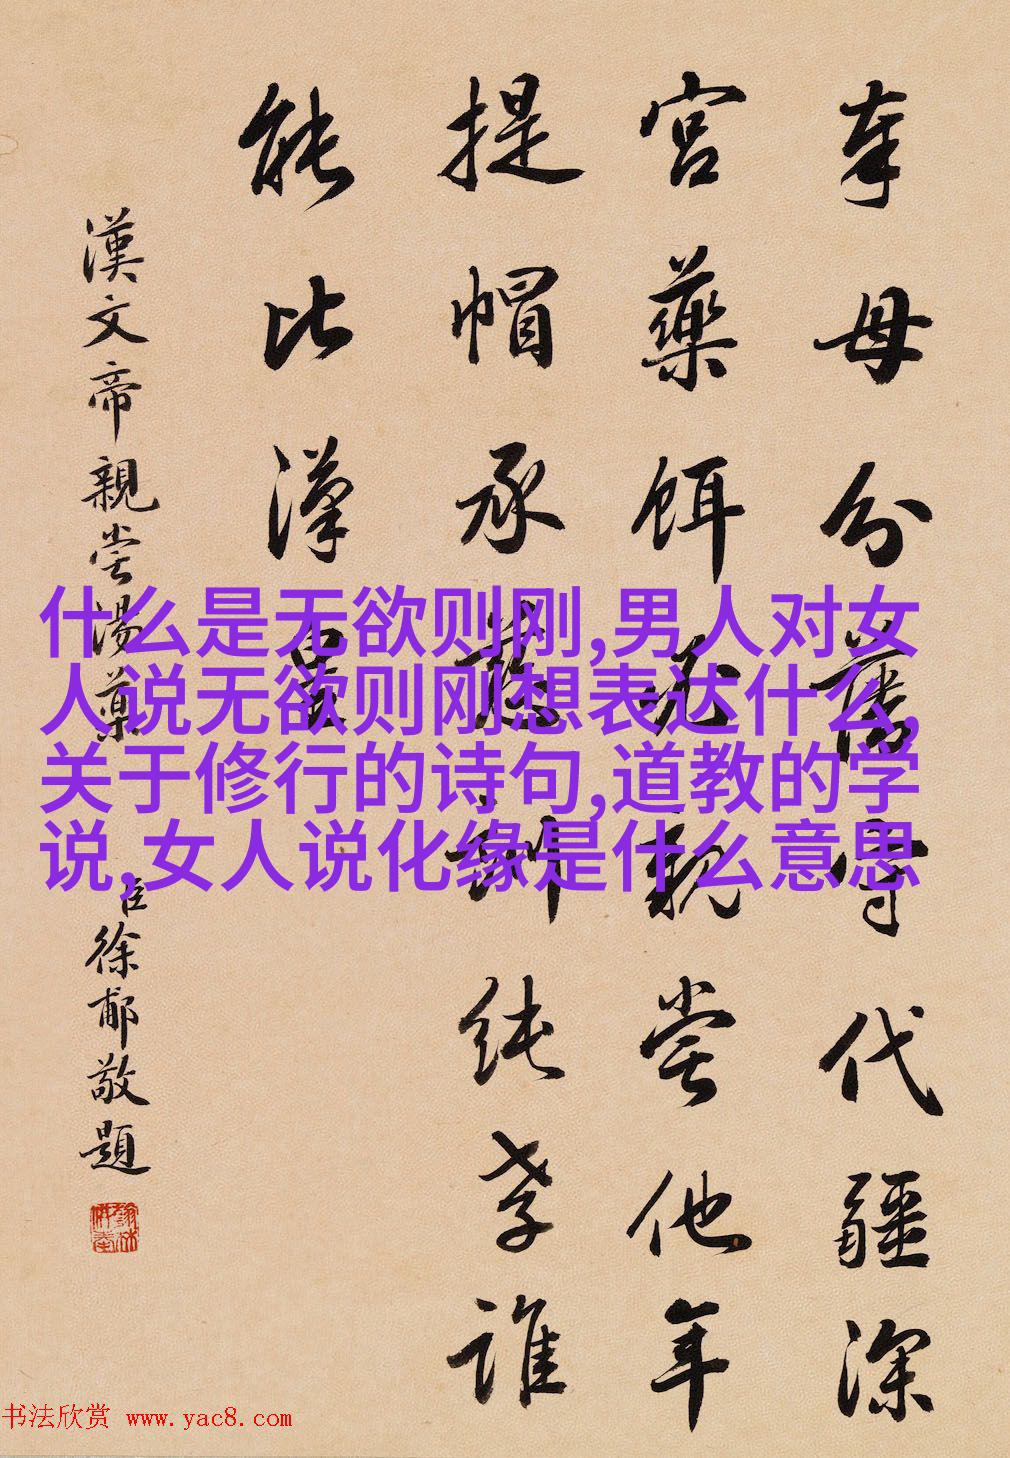 奉母分藩守代疆深
宮藥餌必親嘗他年
提帽承慈訓純孝誰
能比漢皇
漢文帝親嘗湯藥
臣徐郙敬題
什么是无欲则刚,男人对女
人说无欲则刚想表达什么,
关于修行的诗句,道教的学
说,女人说化缘是什么意思
书法欣赏 www.yac8.com